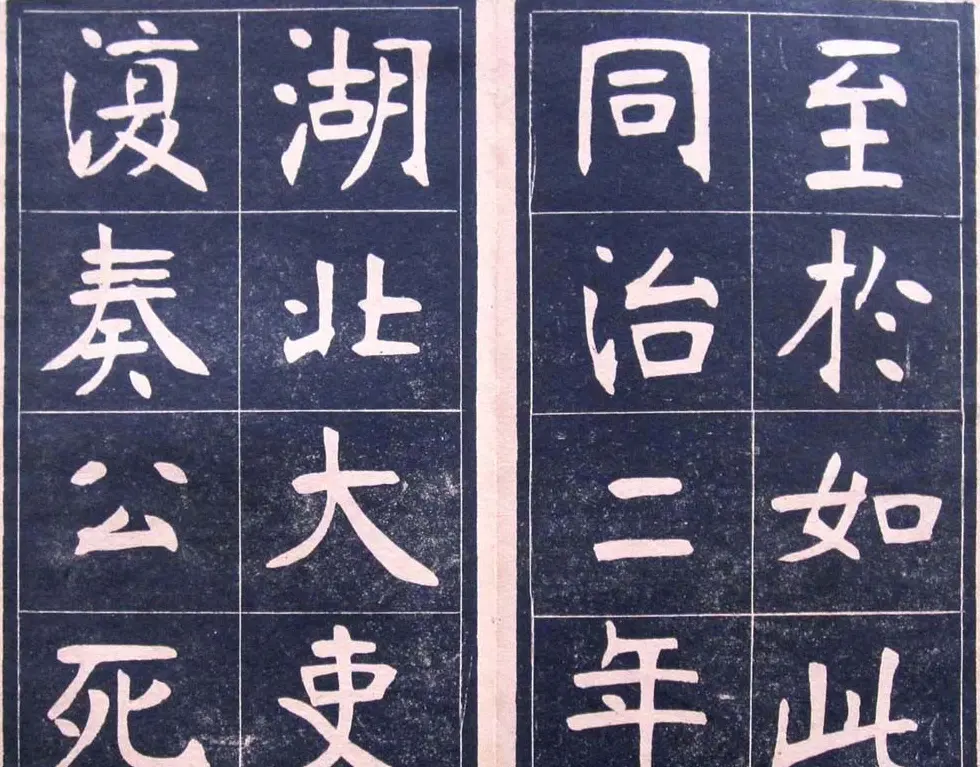 至於如此
同治二年
湖北大吏
復奏公死